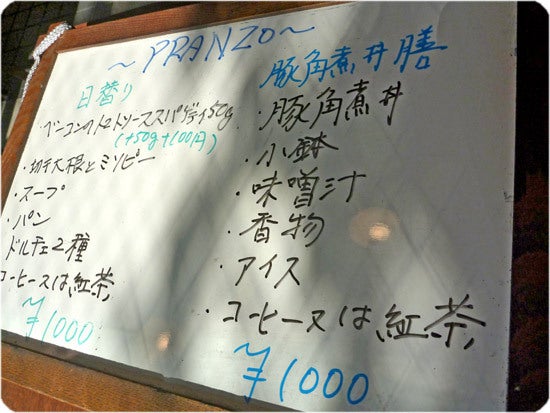 ～PRANZO～
日替り
・ベーコンのトマトソーススパゲティ50g
(+50g+100円)
・切干大根とミソピー
・スープ
・パン
ドルチェ2種
コーヒー又は紅茶
¥1000
豚角煮丼膳
・豚角煮丼
・小鉢
・味噌汁
・香物
・アイス
・コーヒー又は紅茶
¥1000